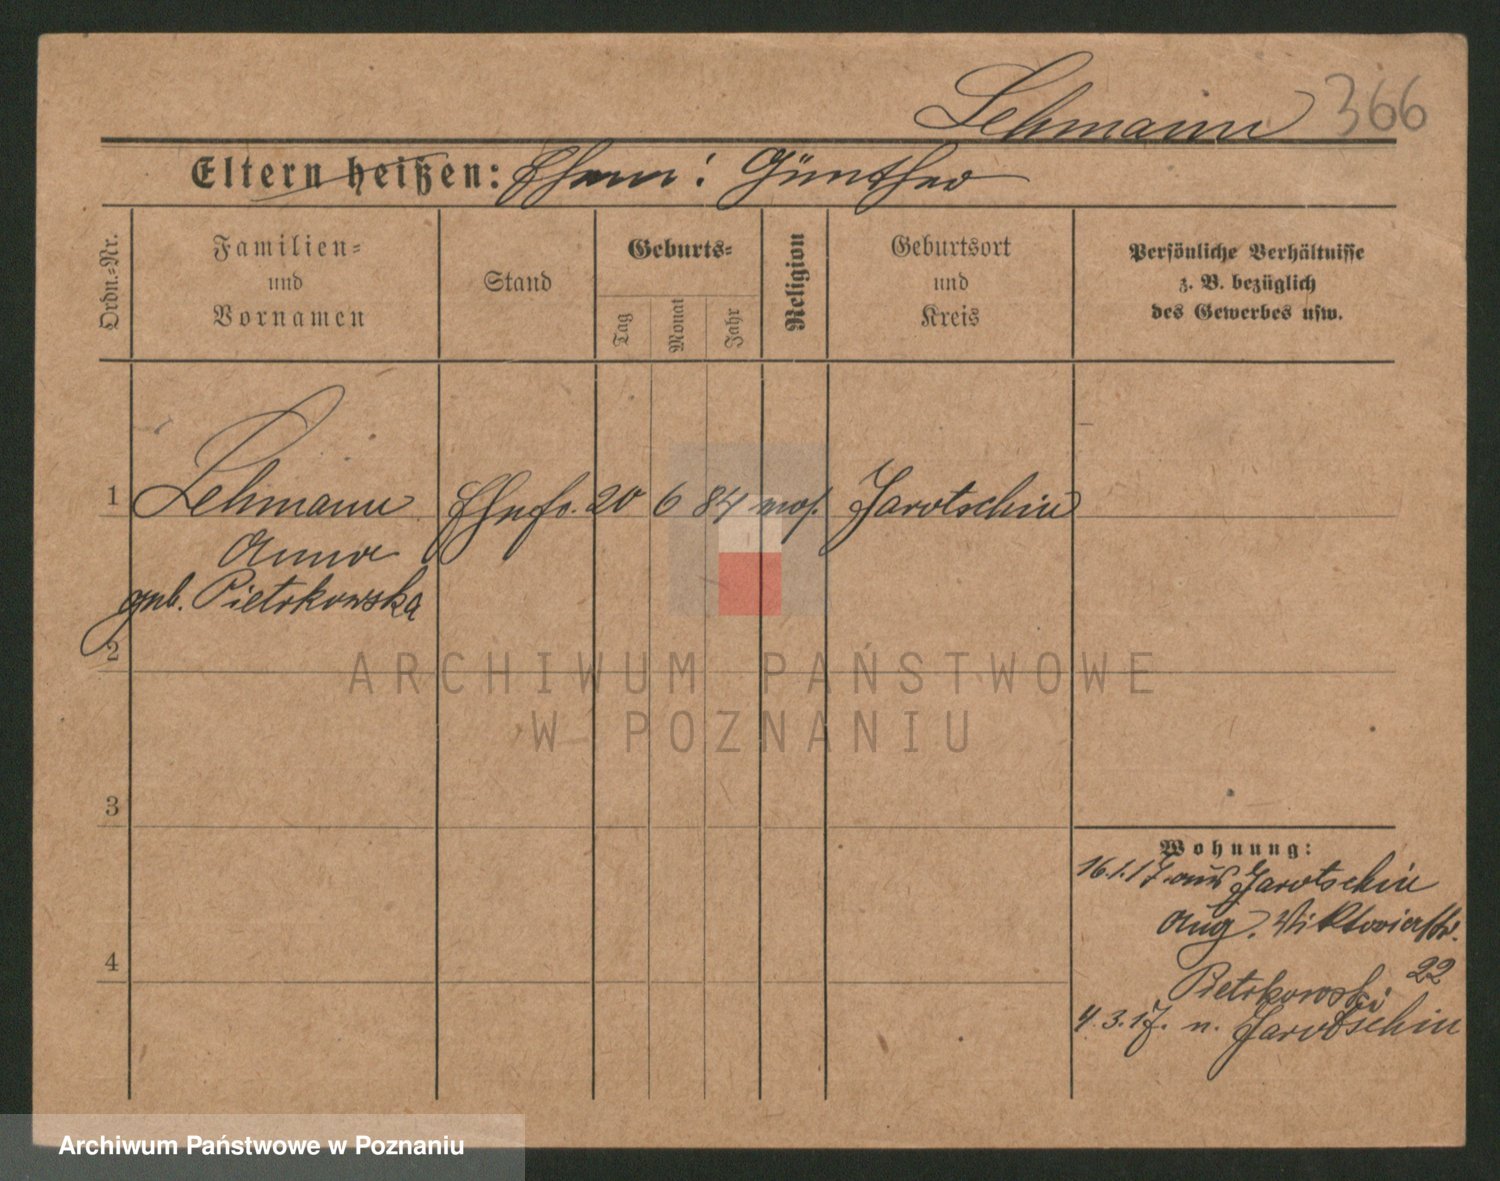 Lehmann 366
Eltern heißen: Ehem: Günther
Ordn.=Nr.
Familien=
und
Vornamen
Stand
Geburts=
Tag
Monat
Jahr
Religion
Geburtsort
und
Kreis
Persönliche Verhältnisse
z. B. bezüglich
des Gewerbes usw.
1 Lehmann Ehefr. 20 6 84 mos. Jarotschin
Anna
geb. Pietrkowska
2
3
4
Wohnung:
16.1.17. aus Jarotschin
Aug. Viktoriastr.
22
Pietrkowski
4.3.17. n. Jarotschin
ARCHIWUM PAŃSTWOWE
W POZNANIU
Archiwum Państwowe w Poznaniu